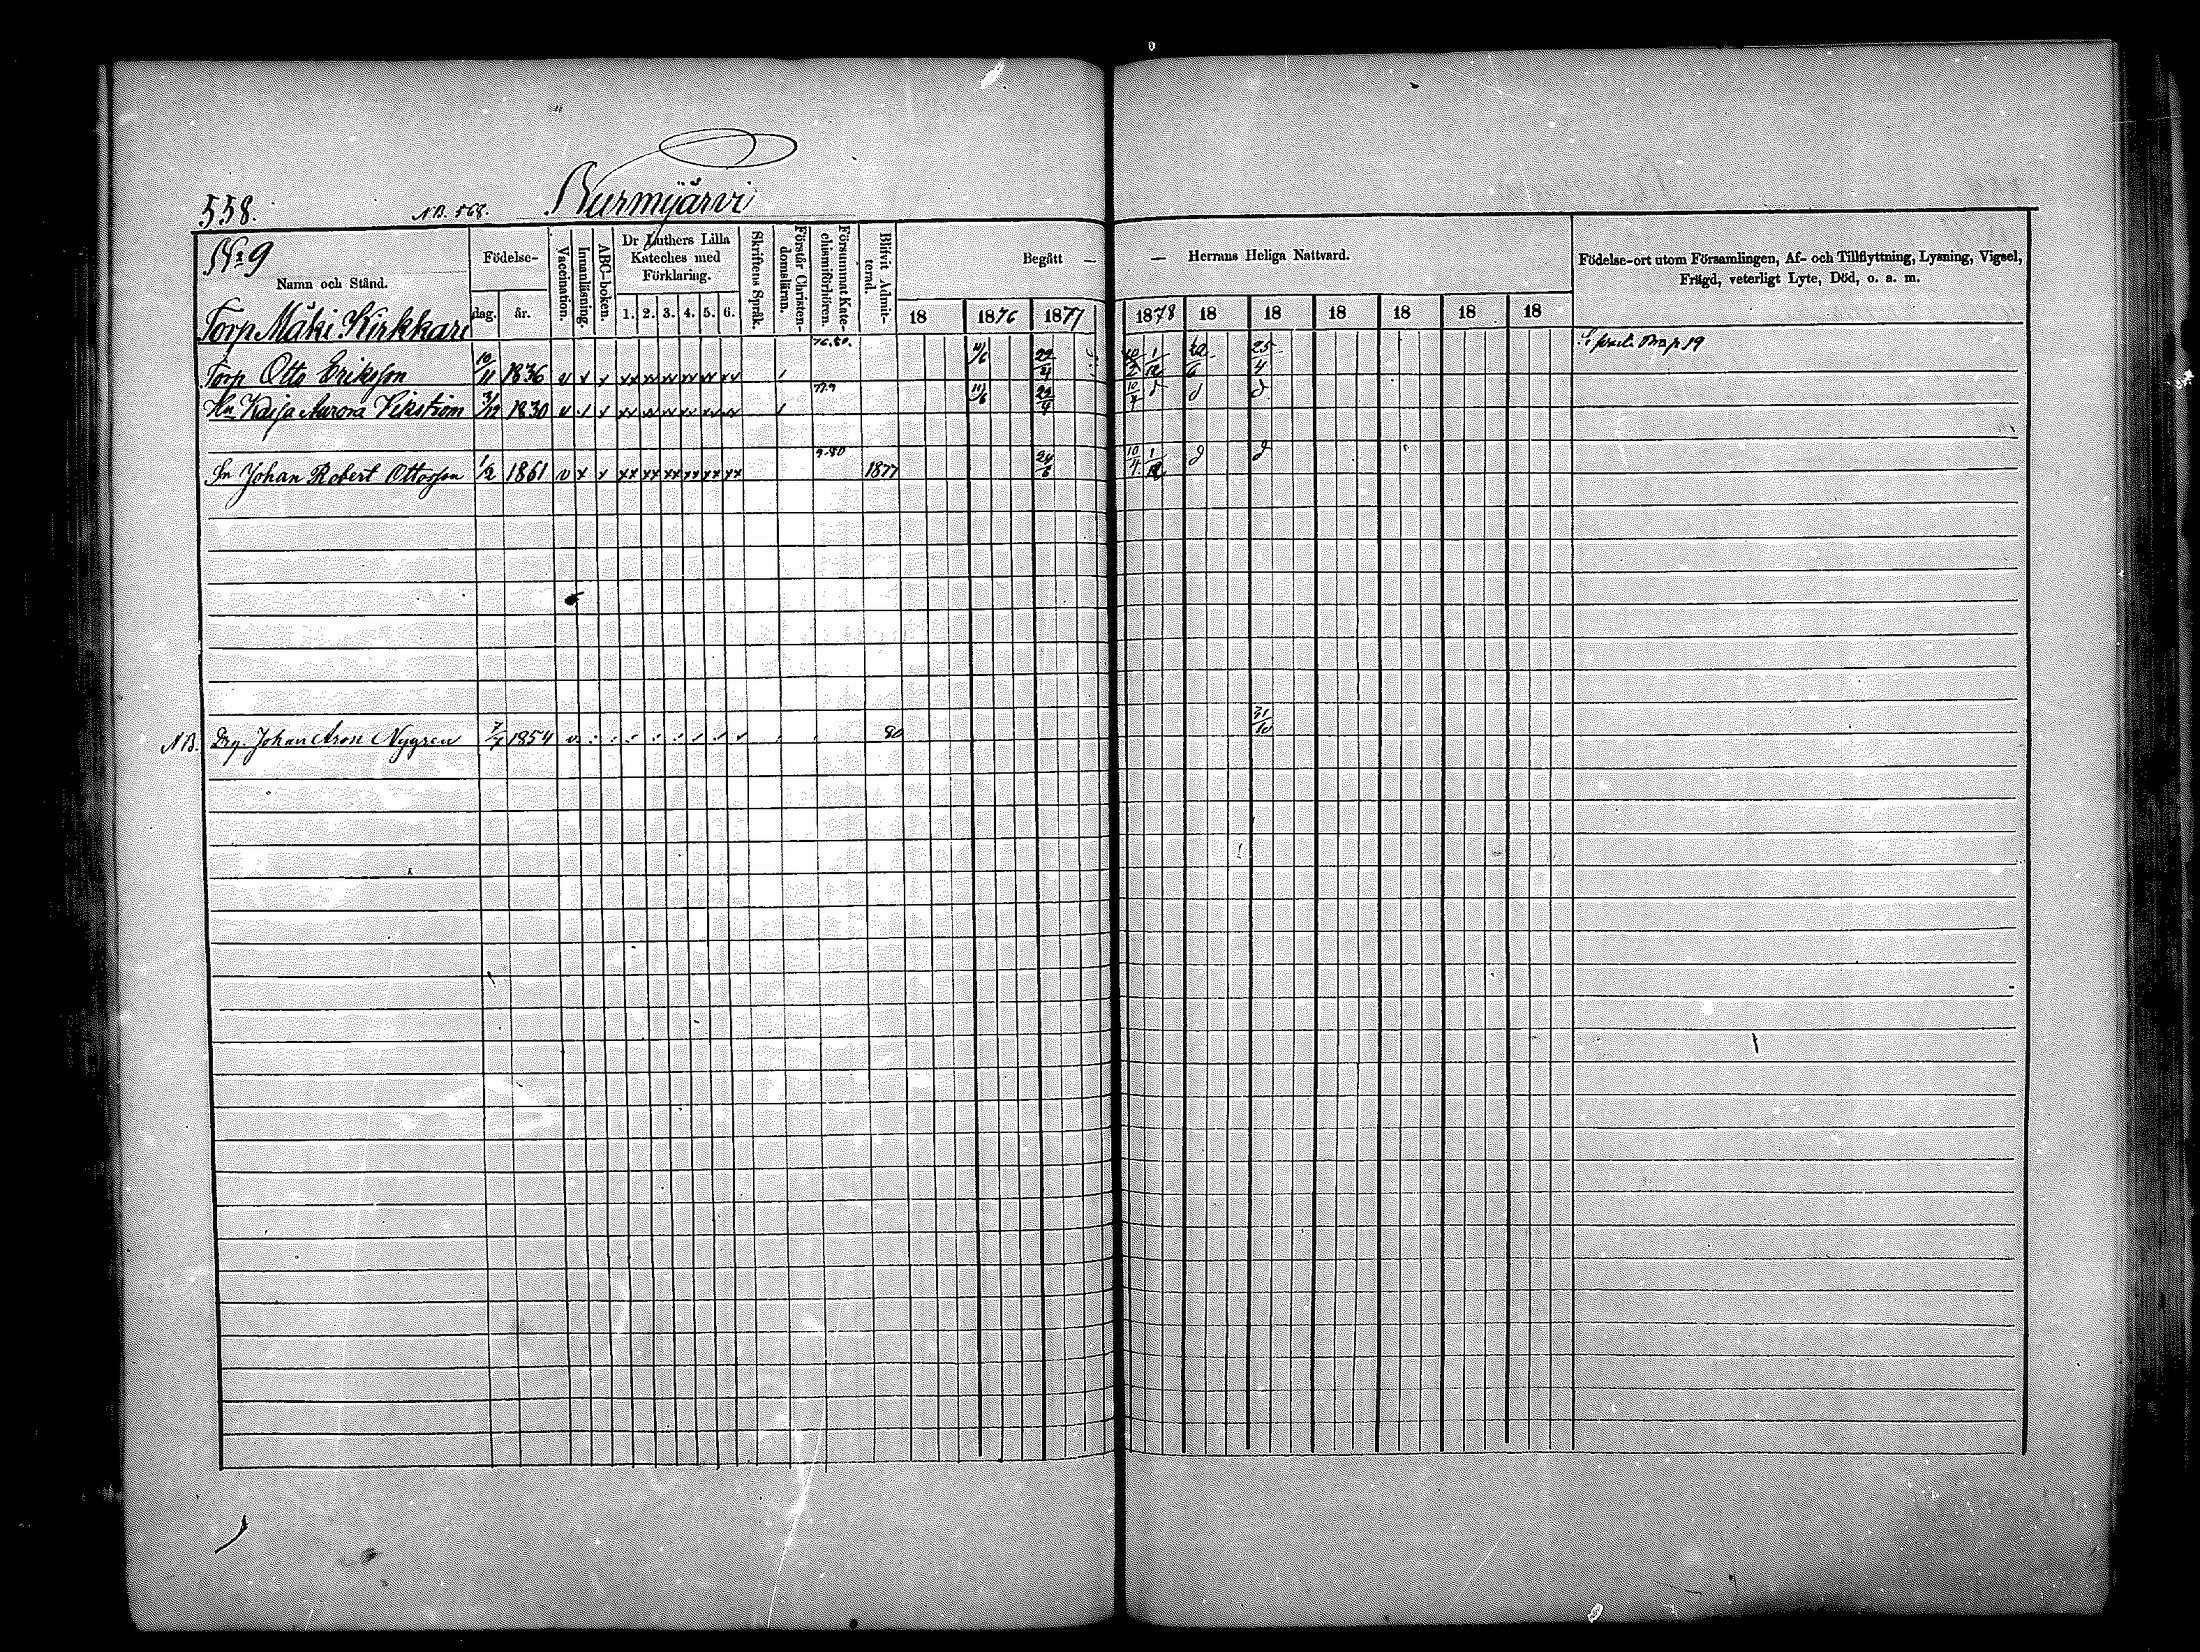 558.
NB. 568.
Kurmjärvi
No 9
Namn och Stånd.
Födelse-
dag.
år.
Vaccination.
Innanläsning.
ABC-boken.
Dr Luthers Lilla
Kateches med
Förklaring.
1. 2. 3. 4. 5. 6.
Skriftens Språk.
Förstår Christen-
domsläran.
Försummat Kate-
chismiförhören.
Blifvit Admit-
terad.
Begått —
— Herrans Heliga Nattvard.
18 1876 1877 1878 18 18 18 18 18 18
Födelse-ort utom Församlingen, Af- och Tillflyttning, Lysning, Vigsel,
Frägd, veterligt Lyte, Död, o. a. m.
Torp Mäki Kirkkari
Torp Otto Eriksson 10/11 1836 v x x xx xx xx xx xx xx 76.80. 22/4 1/12 20/6 25/4
Hn Kaisa Aurora Vikström 3/12 1830 v x x xx xx xx xx xx xx 10/4
Sn Johan Robert Ottosson 1/2 1861 v x x xx xx xx xx xx xx 1877 24/6 10/4 1/12
NB. Drg. Johan Aron Nygren 7/7 1854 v 80 31/10